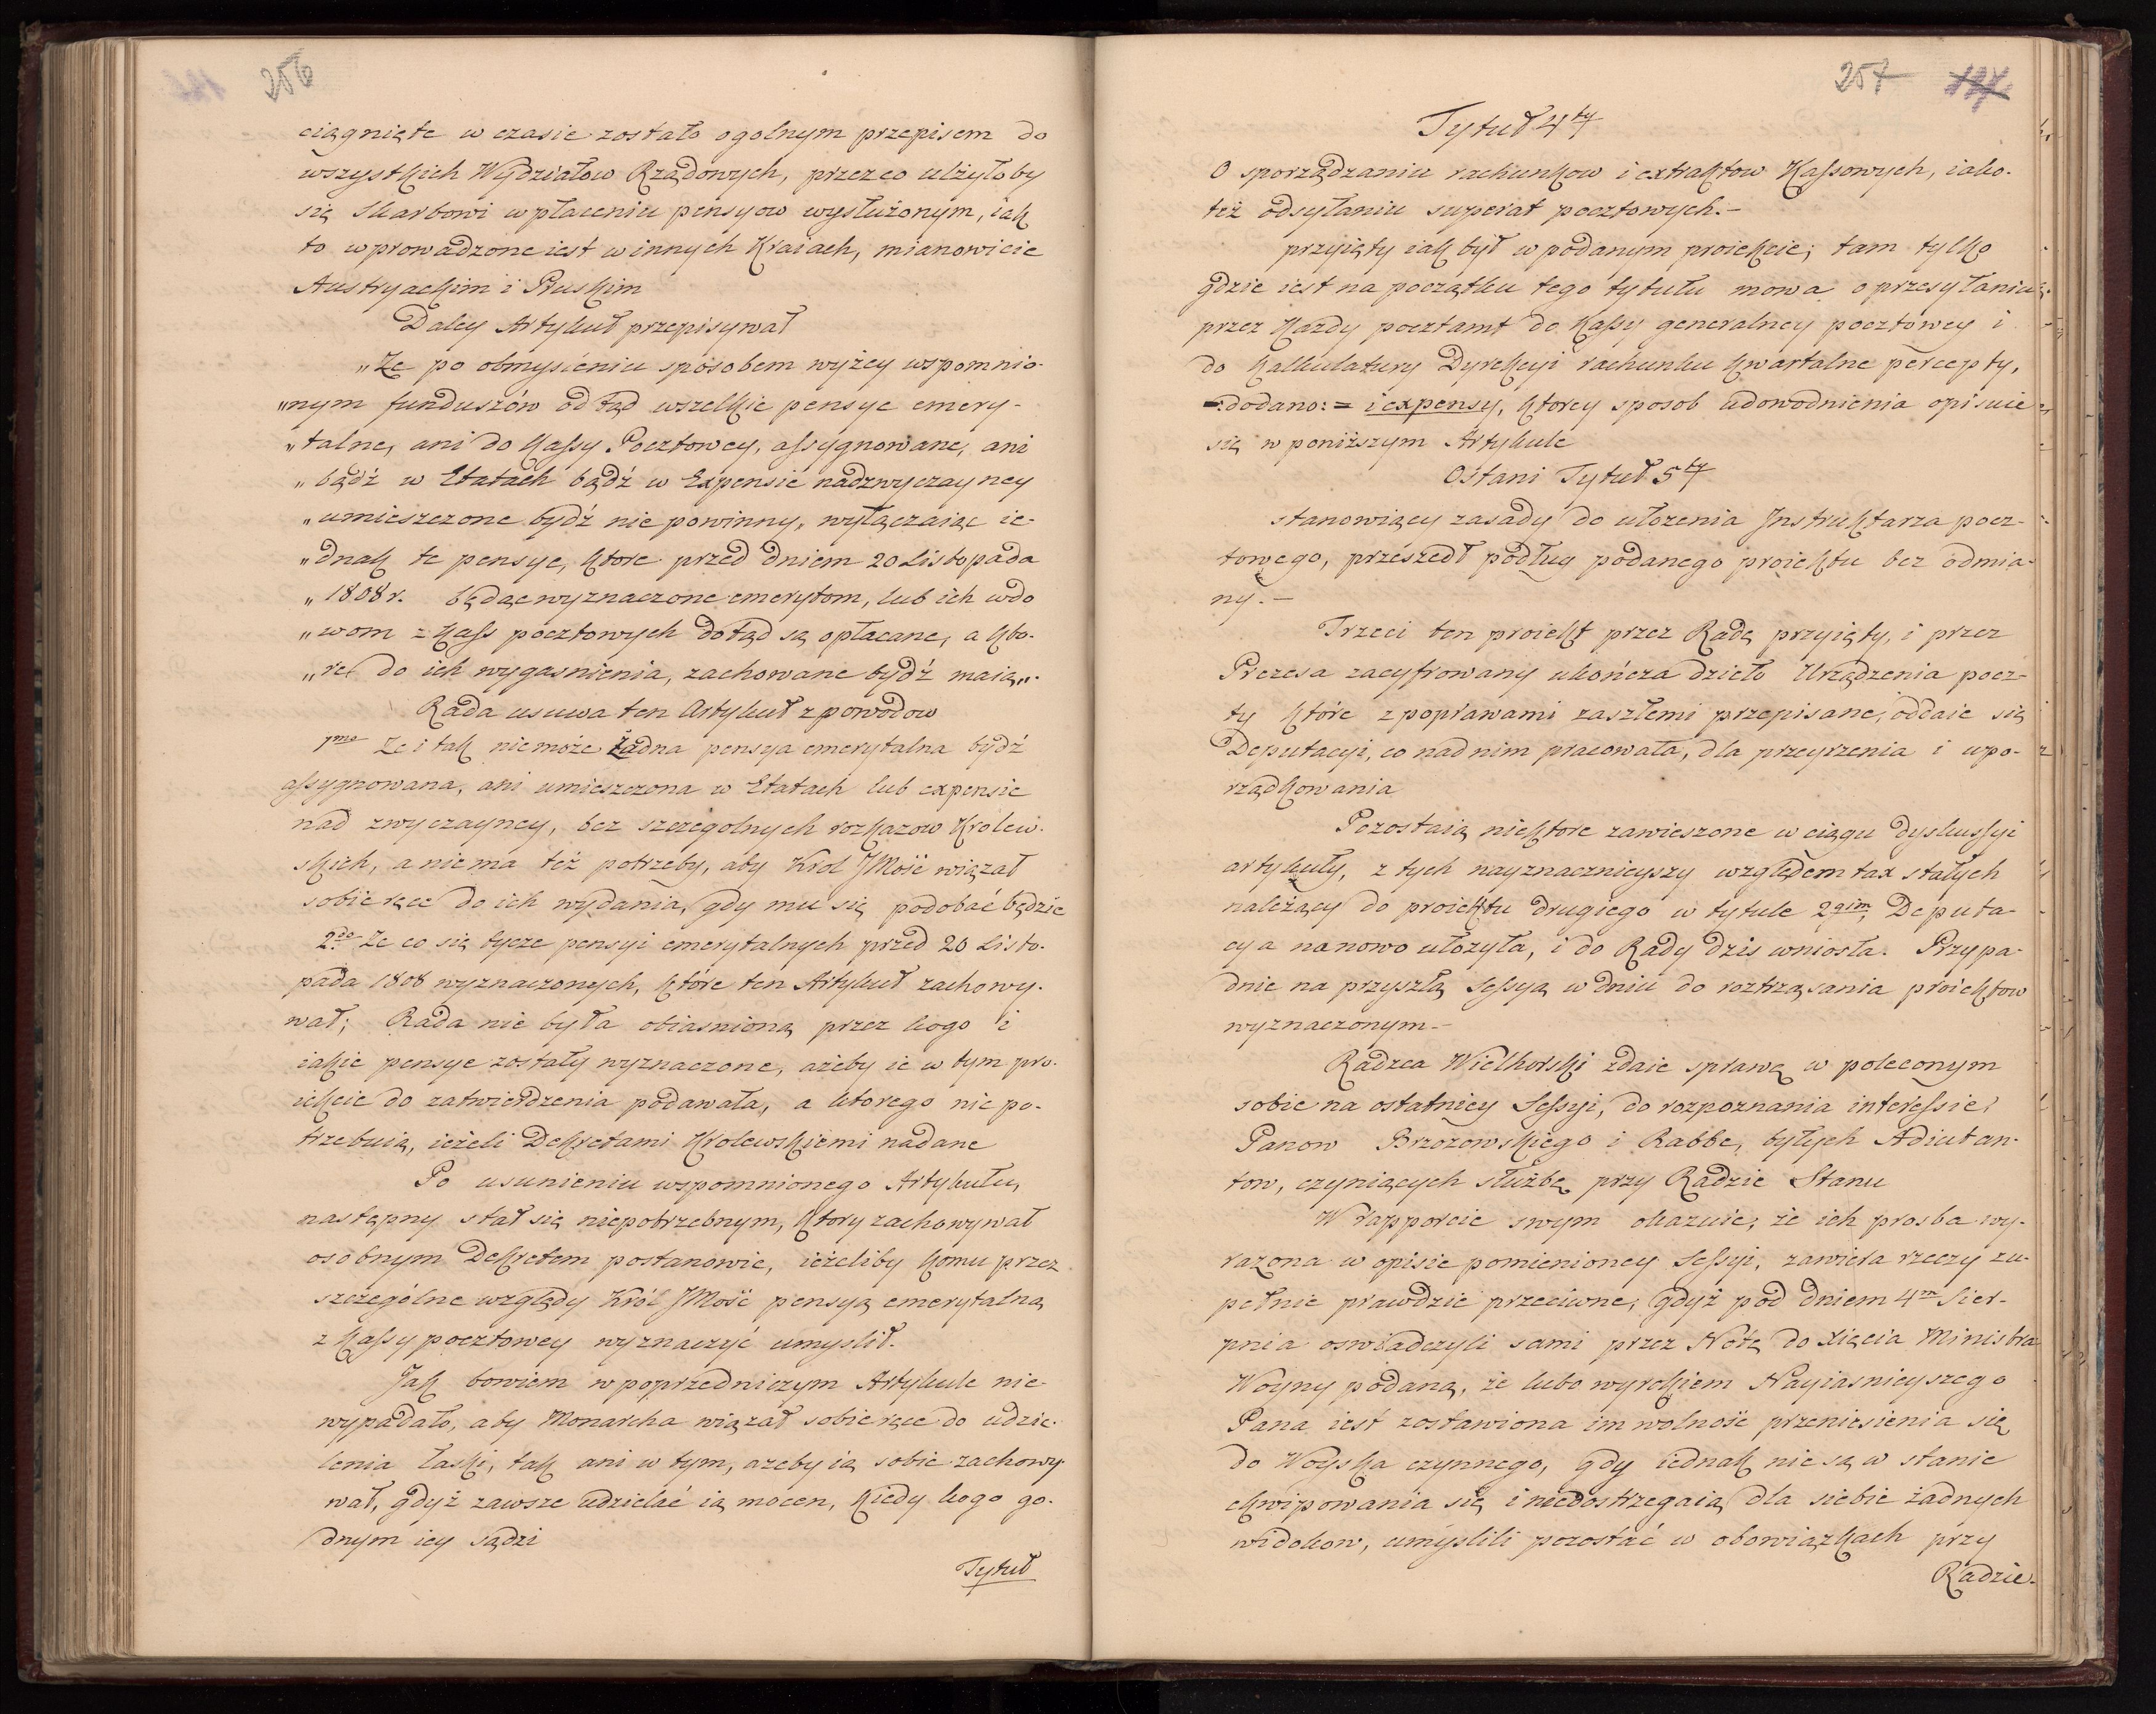 256
ciągnięte w czasie zostało ogolnym przepisem do
wszystkich Wydziałow Rządowych, przez co ulżyłoby
się Skarbowi w płaceniu pensyow wysłużonym, iak
to wprowadzone iest w innych Kraiach, mianowicie
Austryackim i Pruskim
Daley Artykuł przepisywał
„Ze po obmysleniu sposobem wyżey wspomnio-
„nym funduszów odtąd wszelkie pensye emery-
„talne, ani do Kassy Pocztowey, assygnowane, ani
„bądź w Etatach bądź w Expensie nadzwyczayney
„umieszczone bydź nie powinny, wyłączaiąc ie-
„dnak te pensye, ktore przed dniem 20 Listopada
„1808 r. będąc wyznaczone emerytom, lub ich wdo
„wom z Kass pocztowych dotąd są opłacane, a kto-
„re do ich wygasnienia, zachowane bydź maią„.
Rada usuwa ten Artykuł z powodow
1mo Ze i tak niemoże żadna pensya emerytalna bydź
assygnowana, ani umieszczona w Etatach lub expensie
nad zwyczayney, bez szczegolnych rozkazow Krolew-
skich, a niema też potrzeby, aby Krol JMość wiązał
sobie ręce do ich wydania, gdy mu się podobać będzie
2do Ze co się tycze pensyi emerytalnych przed 20 Listo-
pada 1808 wyznaczonych, które ten Artykuł zachowy-
wał; Rada nie była obiasnioną przez kogo i
iakie pensye zostały wyznaczone, ażeby ie w tym pro-
iekcie do zatwierdzenia podawała, a ktorego nie po-
trzebuią, ieżeli Dekretami Krolewskiemi nadane
Po usunieniu wspomnionego Artykułu,
następny stał się niepotrzebnym, ktory zachowywał
osobnym Dekretem postanowić, ieżeliby komu przez
szczególne względy Król JMość pensyą emerytalną
z Kassy pocztowey wyznaczyć umyslił.
Jak bowiem w poprzedniczym Artykule nie
wypadało, aby Monarcha wiązał sobie ręce do udzie-
lenia łaski, tak ani w tym, azeby ią sobie zachowy-
wał, gdyż zawsze udzielać ią mocen, kiedy kogo go-
dnym iey sądzi
Tytuł
257
Tytuł 4ty
O sporządzaniu rachunkow i extraktow Kassowych, iako-
też odsyłaniu superat pocztowych.-
przyięty iak był w podanym proiekcie; tam tylko
gdzie iest na początku tego tytułu mowa o przesyłaniu
przez Kazdy pocztamt do Kassy generalney pocztowey i
do Kalkulatury Dyrekcyi rachunku kwartalne percepty,
=dodano:= i expensy, ktorey sposob udowodnienia opisuie
się w poniższym Artykule
Ostani Tytuł 5ty
stanowiący zasady do ułozenia Instruktarza pocz-
towego, przeszedł podług podanego proiektu bez odmia-
ny.-
Trzeci ten proiekt przez Radę przyięty, i przez
Prezesa zacyfrowany ukończa dzieło Urządzenia pocz-
ty które z poprawami zaszłemi przepisane, oddaie się
Deputacyi, co nad nim pracowała, dla przeyrzenia i upo-
rządkowania
Pozostaią niektore zawieszone w ciągu dyskussyi
artykuły, z tych nayznacznieyszy względem tax stałych
należący do proiektu drugiego w tytule 2gim, Deputa-
cya nanowo ułozyła, i do Rady dzis wniosła. Przypa-
dnie na przyszłą Sessyą w dniu do roztrząsania proiektow
wyznaczonym.-
Radzca Wielhorski zdaie sprawę w poleconym
sobie na ostatniey Sessyi, do rozpoznania interessie
Panow Brzozowskiego i Rabbe, byłych Adiutan-
tow, czyniących służbę przy Radzie Stanu
W rapporcie swym okazuie, że ich prosba wy-
razona w opisie pomienioney Sessyi, zawiera rzeczy zu-
pełnie prawdzie przeciwne, gdyż pod dniem 4m Sier-
pnia oswiadczyli sami przez Notę do Xięcia Ministra
Woyny podaną, że lubo wyrokiem Nayiasnieyszego
Pana iest zostawiona im wolność przeniesienia się
do Woyska czynnego, gdy iednak nie są w stanie
ekwipowania się i niedostrzegaią dla siebie żadnych
widokow, umyslili pozostać w obowiązkach przy
Radzie-